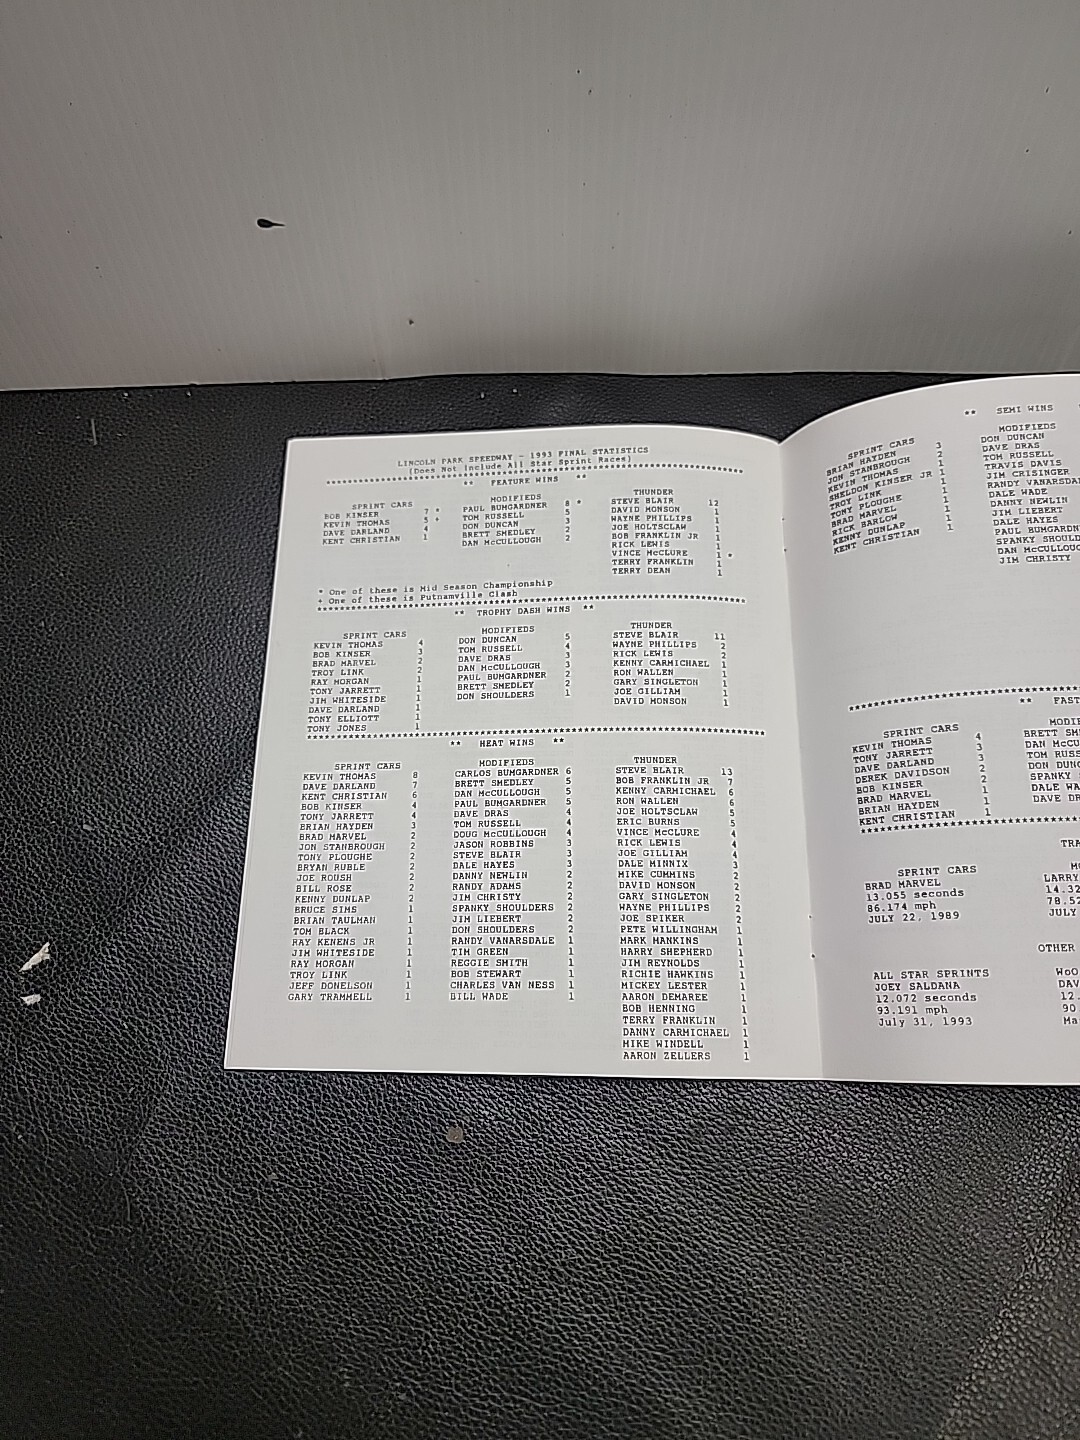 LINCOLN PARK SPEEDWAY - 1993 FINAL STATISTICS
(Does Not Include All Star Sprint Races)
** FEATURE WINS **
SPRINT CARS
BOB KINSER 7 *
KEVIN THOMAS 5 +
DAVE DARLAND 4
KENT CHRISTIAN 1
MODIFIEDS
PAUL BUMGARDNER 8 *
TOM RUSSELL 5
DON DUNCAN 3
BRETT SMEDLEY 2
DAN McCULLOUGH 2
THUNDER
STEVE BLAIR 12
DAVID MONSON 1
WAYNE PHILLIPS 1
JOE HOLTSCLAW 1
BOB FRANKLIN JR 1
RICK LEWIS 1
VINCE McCLURE 1 *
TERRY FRANKLIN 1
TERRY DEAN 1
* One of these is Mid Season Championship
+ One of these is Putnamville Clash
** TROPHY DASH WINS **
SPRINT CARS
KEVIN THOMAS 4
BOB KINSER 3
BRAD MARVEL 2
TROY LINK 2
RAY MORGAN 1
TONY JARRETT 1
JIM WHITESIDE 1
DAVE DARLAND 1
TONY ELLIOTT 1
TONY JONES 1
MODIFIEDS
DON DUNCAN 5
TOM RUSSELL 4
DAVE DRAS 3
DAN McCULLOUGH 3
PAUL BUMGARDNER 2
BRETT SMEDLEY 2
DON SHOULDERS 1
THUNDER
STEVE BLAIR 11
WAYNE PHILLIPS 2
RICK LEWIS 2
KENNY CARMICHAEL 1
RON WALLEN 1
GARY SINGLETON 1
JOE GILLIAM 1
DAVID MONSON 1
** HEAT WINS **
SPRINT CARS
KEVIN THOMAS 8
DAVE DARLAND 7
KENT CHRISTIAN 6
BOB KINSER 4
TONY JARRETT 4
BRIAN HAYDEN 3
BRAD MARVEL 2
JON STANBROUGH 2
TONY PLOUGHE 2
BRYAN RUBLE 2
JOE ROUSH 2
BILL ROSE 2
KENNY DUNLAP 2
BRUCE SIMS 1
BRIAN TAULMAN 1
TOM BLACK 1
RAY KENENS JR 1
JIM WHITESIDE 1
RAY MORGAN 1
TROY LINK 1
JEFF DONELSON 1
GARY TRAMMELL 1
MODIFIEDS
CARLOS BUMGARDNER 6
BRETT SMEDLEY 5
DAN McCULLOUGH 5
PAUL BUMGARDNER 5
DAVE DRAS 4
TOM RUSSELL 4
DOUG McCULLOUGH 4
JASON ROBBINS 3
STEVE BLAIR 3
DALE HAYES 3
DANNY NEWLIN 2
RANDY ADAMS 2
JIM CHRISTY 2
SPANKY SHOULDERS 2
JIM LIEBERT 2
DON SHOULDERS 2
RANDY VANARSDALE 1
TIM GREEN 1
REGGIE SMITH 1
BOB STEWART 1
CHARLES VAN NESS 1
BILL WADE 1
THUNDER
STEVE BLAIR 13
BOB FRANKLIN JR 7
KENNY CARMICHAEL 6
RON WALLEN 6
JOE HOLTSCLAW 5
ERIC BURNS 5
VINCE McCLURE 4
RICK LEWIS 4
JOE GILLIAM 4
DALE MINNIX 3
MIKE CUMMINS 2
DAVID MONSON 2
GARY SINGLETON 2
WAYNE PHILLIPS 2
JOE SPIKER 2
PETE WILLINGHAM 1
MARK MANKINS 1
HARRY SHEPHERD 1
JIM REYNOLDS 1
RICHIE HAWKINS 1
MICKEY LESTER 1
AARON DEMAREE 1
BOB HENNING 1
TERRY FRANKLIN 1
DANNY CARMICHAEL 1
MIKE WINDELL 1
AARON ZELLERS 1
** SEMI WINS
SPRINT CARS
BRIAN HAYDEN 3
JON STANBROUGH 2
KEVIN THOMAS 1
SHELDON KINSER JR 1
TROY LINK 1
TONY PLOUGHE 1
BRAD MARVEL 1
RICK BARLOW 1
KENNY DUNLAP 1
KENT CHRISTIAN 1
MODIFIEDS
DON DUNCAN
DAVE DRAS
TOM RUSSELL
TRAVIS DAVIS
JIM CRISINGER
RANDY VANARSDA
DALE WADE
DANNY NEWLIN
JIM LIEBERT
DALE HAYES
PAUL BUMGARDN
SPANKY SHOULD
DAN McCULLOU
JIM CHRISTY
** FAST
SPRINT CARS
KEVIN THOMAS 4
TONY JARRETT 3
DAVE DARLAND 3
DEREK DAVIDSON 2
BOB KINSER 2
BRAD MARVEL 1
BRIAN HAYDEN 1
KENT CHRISTIAN 1
MODIF
BRETT SM
DAN McCU
TOM RUSS
DON DUNC
SPANKY
DALE WA
DAVE DR
TRA
SPRINT CARS
BRAD MARVEL
13.055 seconds
86.174 mph
JULY 22, 1989
MO
LARRY
14.32
78.52
JULY
OTHER
ALL STAR SPRINTS
JOEY SALDANA
12.072 seconds
93.191 mph
July 31, 1993
WoO
DAV
12.
90.
Ma